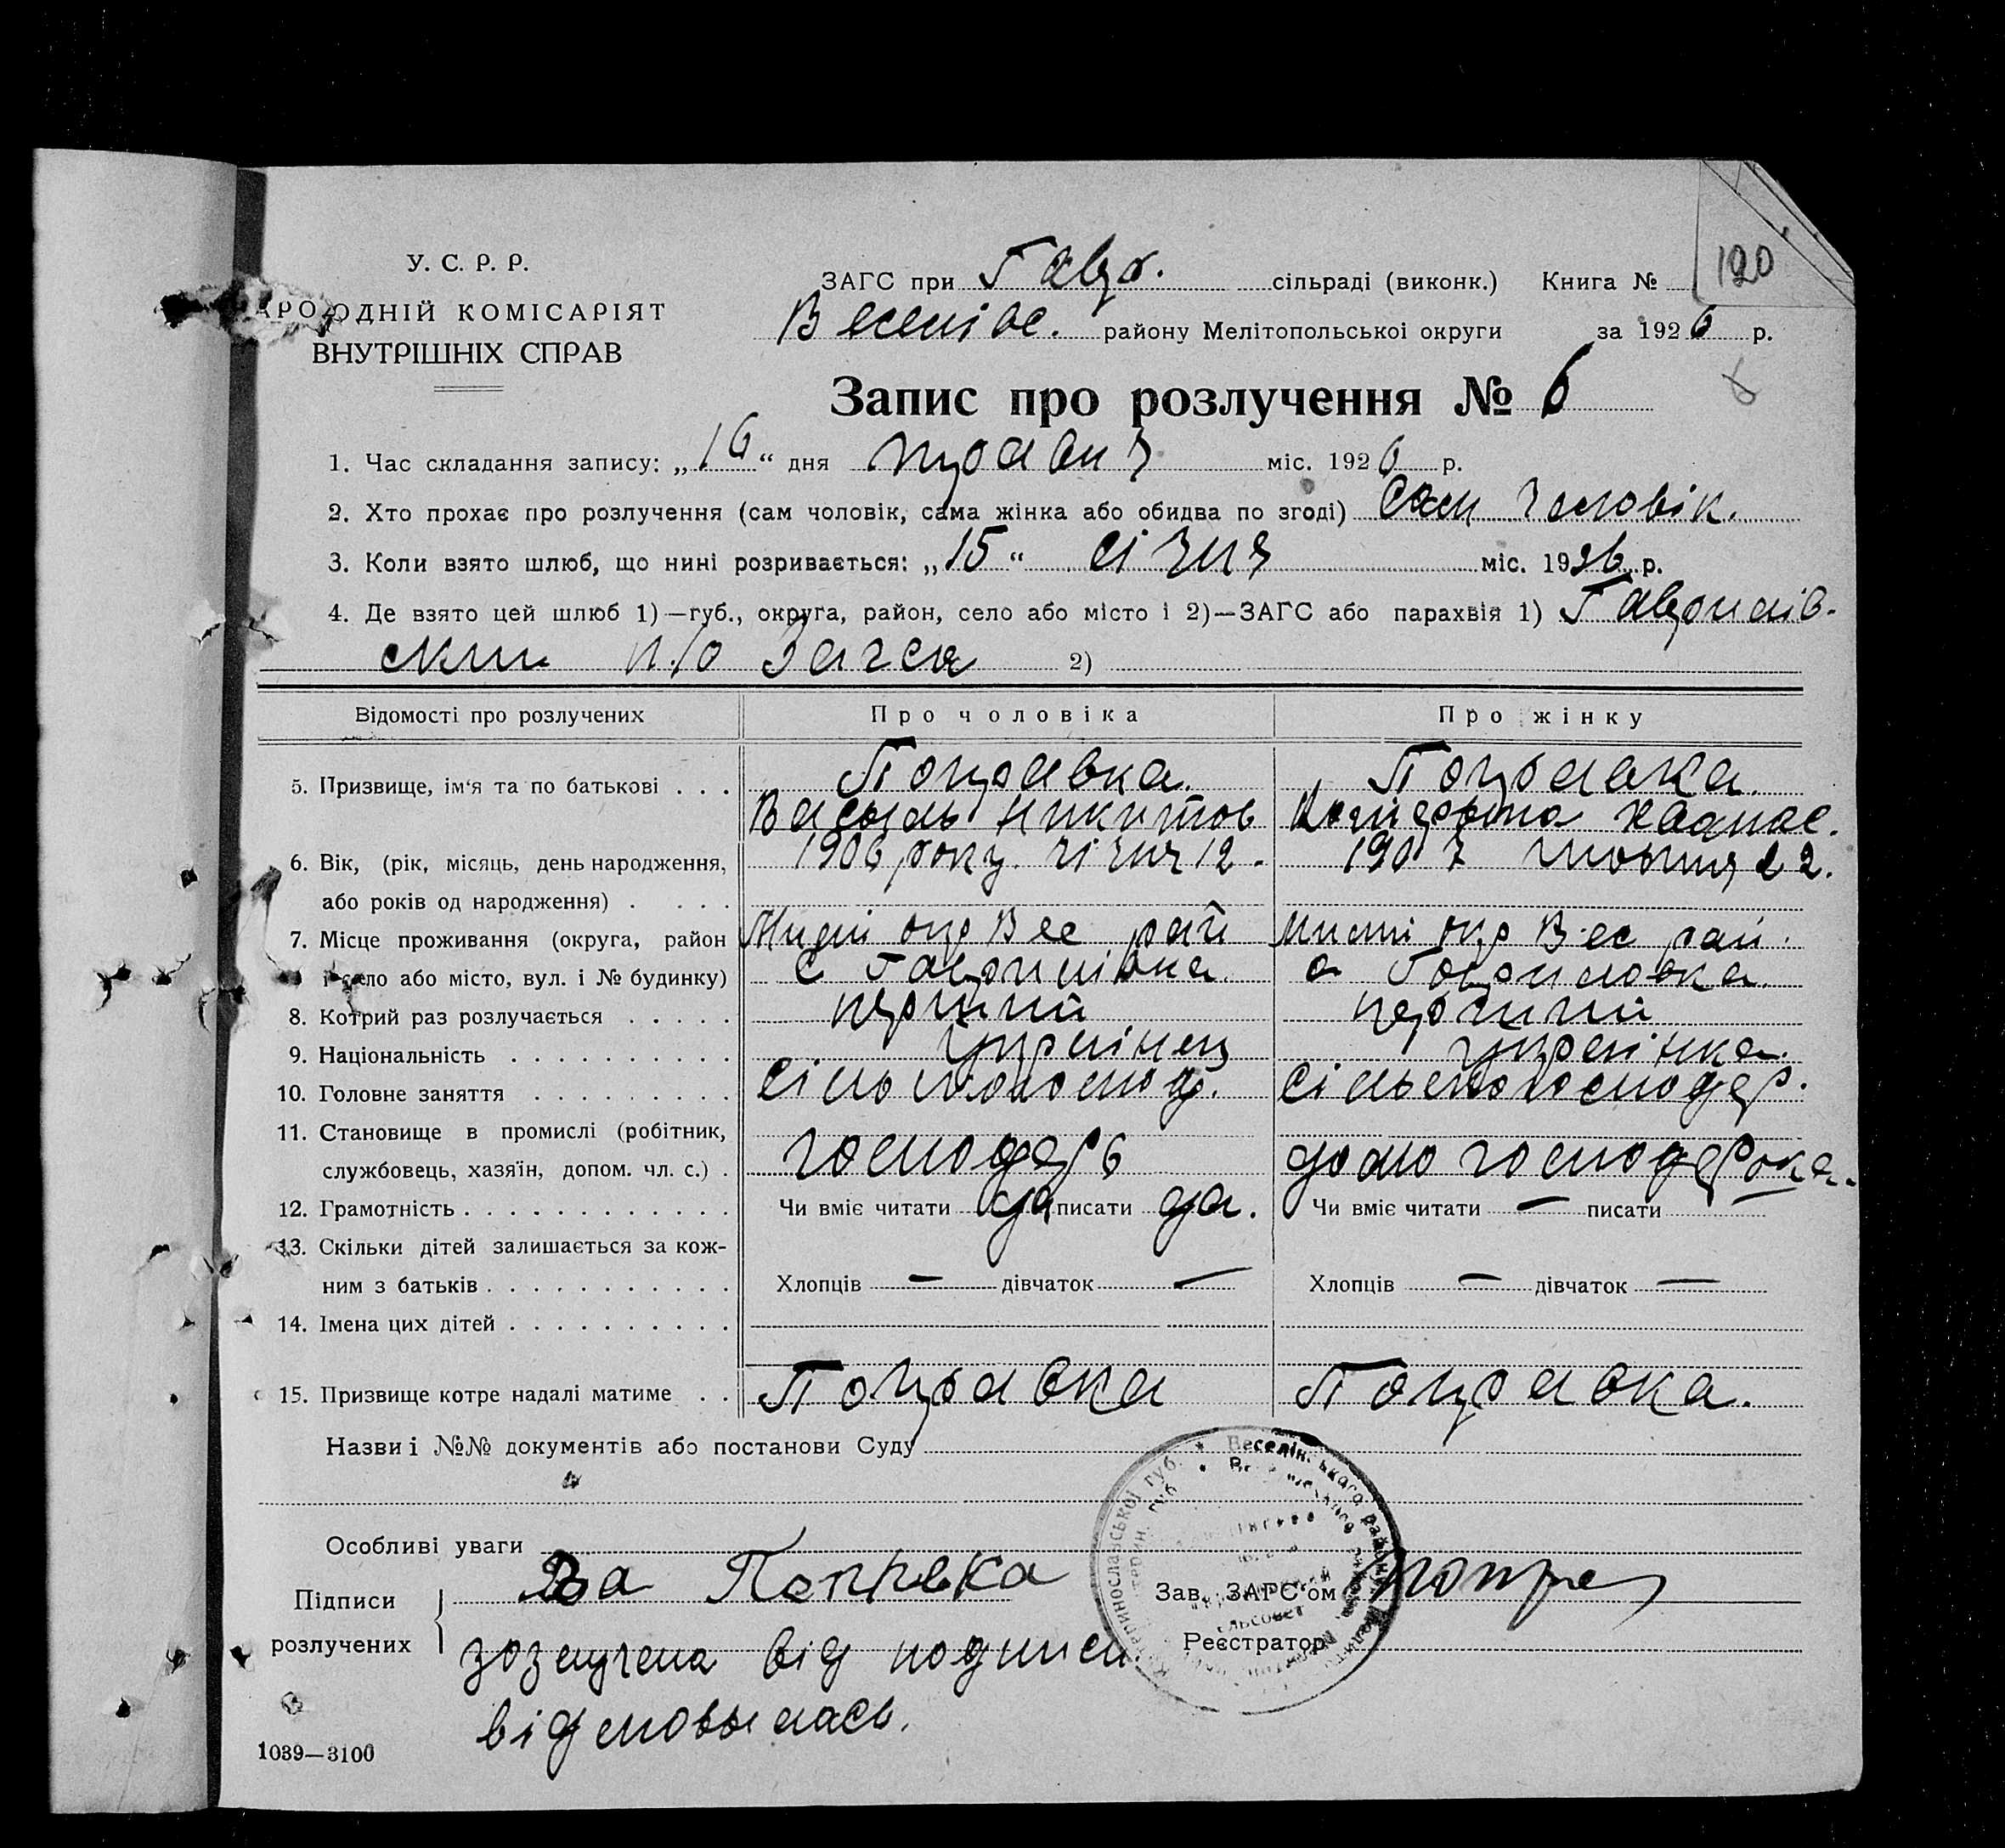 120
У. С. Р. Р.
НАРОДНІЙ КОМІСАРІЯТ
ВНУТРІШНІХ СПРАВ
ЗАГС при Гавр. сільраді (виконк.) Книга №
Веселів. району Мелітопольської округи за 1926 р.
Запис про розлучення № 6
6
1. Час складання запису: „16“ дня травня міс. 1926 р.
2. Хто прохає про розлучення (сам чоловік, сама жінка або обидва по згоді) Сам чоловік.
3. Коли взято шлюб, що нині розривається: „15“ січня міс. 1926 р.
4. Де взято цей шлюб 1)—губ., округа, район, село або місто і 2)—ЗАГС або парахвія 1) Гаврилів-
ским п/о Загса 2)
Відомості про розлучених Про чоловіка Про жінку
5. Призвище, ім‘я та по батькові . . . Поправка. Поправка.
Василь Никитов Панас.
6. Вік, (рік, місяць, день народження, 1906 року січня 12. 1907 жовтня 22.
або років од народження) . . . .
7. Місце проживання (округа, район Мелі окр Вес рай Мелі окр Вес рай.
і село або місто, вул. і № будинку) с Гаврилівка. с Гавриловка.
8. Котрий раз розлучається . . . . . перший перший
9. Національність . . . . . . . . . . Українец Українка.
10. Головне заняття . . . . . . . . . Сільськогоспод. Сільськогосподар.
11. Становище в промислі (робітник,
службовець, хазяїн, допом. чл. с.) . господарь домогосподарока.
12. Грамотність . . . . . . . . . . . . Чи вміє читати да писати да. Чи вміє читати — писати —
13. Скільки дітей залишається за кож-
ним з батьків . . . . . . . . . . . Хлопців — дівчаток — Хлопців — дівчаток —
14. Імена цих дітей . . . . . . . . . .
15. Призвище котре надалі матиме . . Поправка Поправка.
Назви і №№ документів або постанови Суду
Особливі уваги
Підписи розлучених
Попрвка
Зав. ЗАГС'ом
розлучена від подписи
Реєстратор
відмовылась.
Катеринославської губ. * Веселінського району
1039—3100